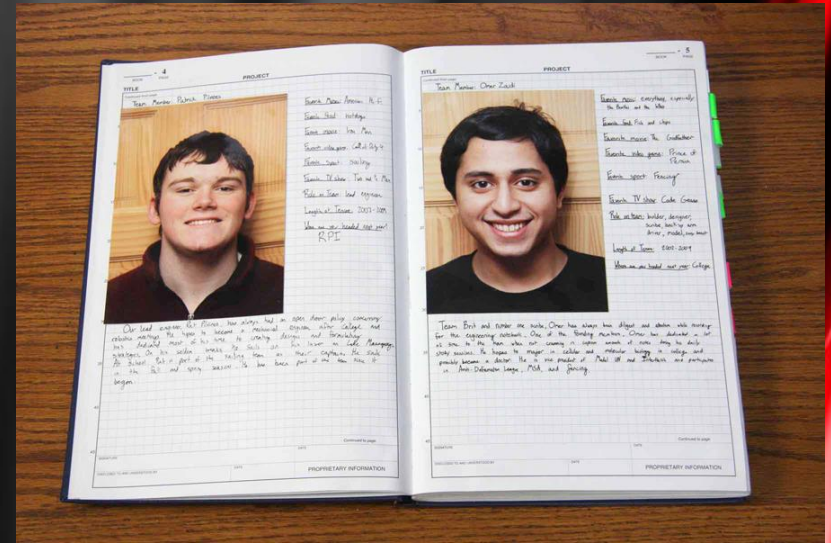 - 4
BOOK PAGE
TITLE PROJECT
Continued from page
Team Member: Patrick
Favorite Music: American Hi-Fi
Favorite food: hotdogs
Favorite movie: Iron Man
Favorite video game: Call of Duty 4
Favorite sport: Sailing
Favorite TV show: Two and ½ Men
Role on Team: lead engineer
Length of Tenure: 2007-2009
Where are you headed next year?
RPI
Our lead engineer, Pat has always had an open door policy concerning
He hopes to become a mechanical engineer after college and
has dedicated most of his time to creating designs and formulating
On his seldom breaks he sails on his laser on Lake
At School, Pat is part of the sailing team as their captain. He sails
in the fall and spring season. He has been part of the team since it
began.
Continued to page
SIGNATURE DATE
DISCLOSED TO AND UNDERSTOOD BY DATE PROPRIETARY INFORMATION
- 5
BOOK PAGE
TITLE PROJECT
Continued from page
Team Member: Omer Zaidi
Favorite music: everything, especially
the Beatles and the Who
Favorite food: Fish and chips
Favorite movie: The Godfather
Favorite video game: Prince of
Persia
Favorite sport: Fencing
Favorite TV show: Code Geass
Role on team: builder, designer,
back up arm
driver,
Length of Team: 2007-2009
Where are you headed next year: College
Team Brit and number one Omer has always been diligent and attentive while working
for the engineering notebook. One of the founding members, Omer has dedicated a lot
of time to the team when not cramming in copious amounts of notes during his daily
study sessions. He hopes to major in cellular and molecular biology in college and
possibly become a doctor. He is vice president of Model UN and and participates
in Anti-Defamation League, MSA, and fencing.
Continued to page
SIGNATURE DATE
DISCLOSED TO AND UNDERSTOOD BY DATE PROPRIETARY INFORMATION